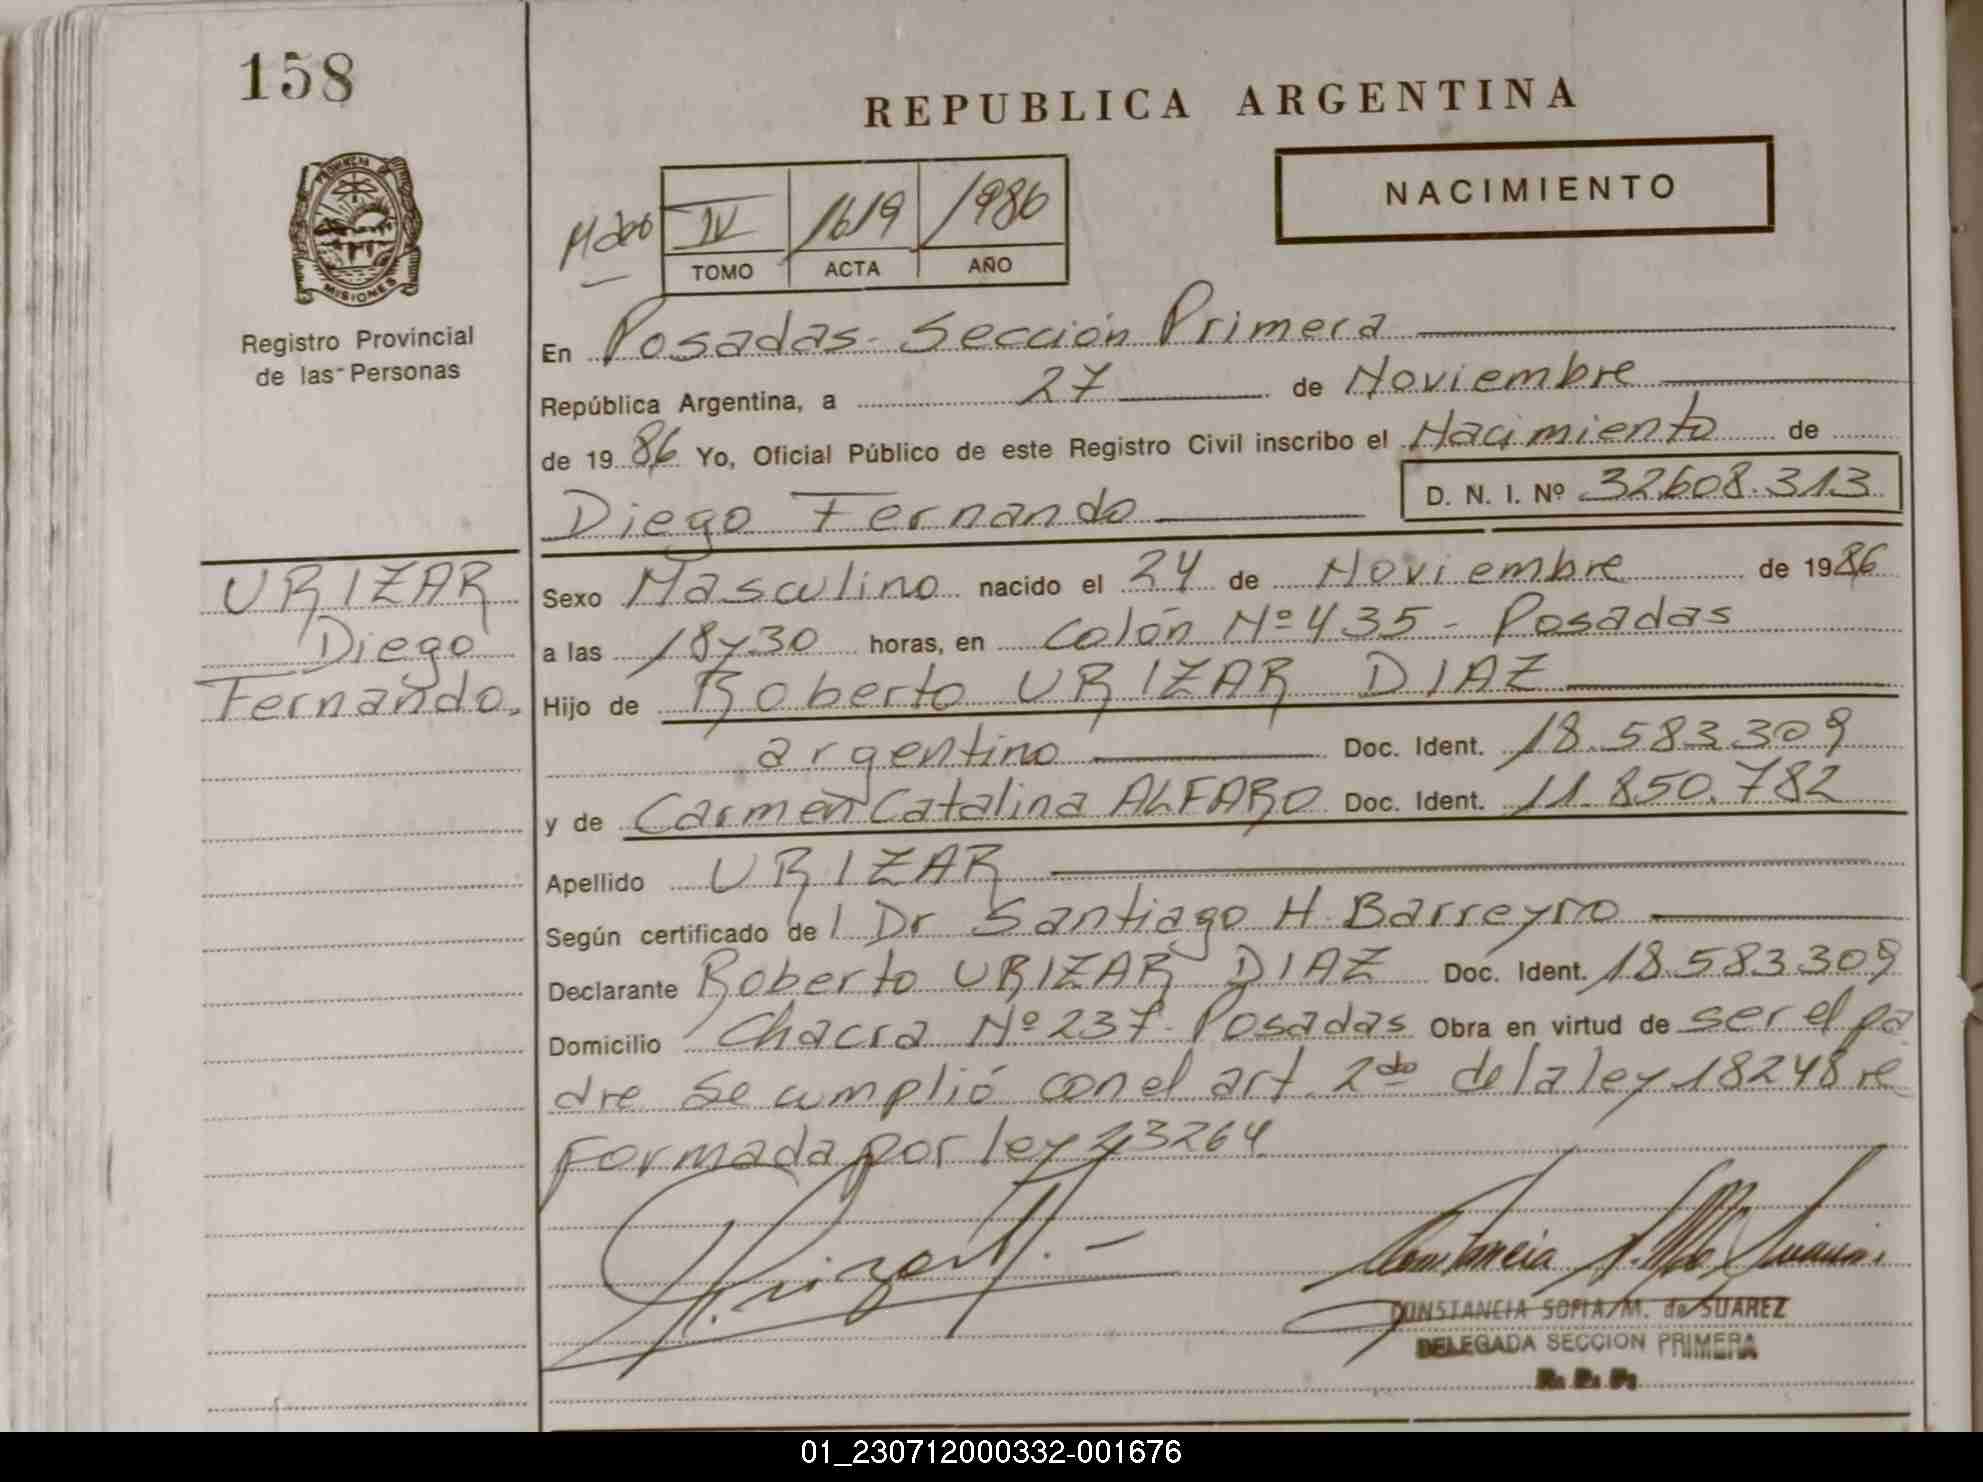 158
REPUBLICA ARGENTINA
PROVINCIA DE
MISIONES
NACIMIENTO
IV 1619 1986
TOMO ACTA AÑO
Registro Provincial
de las Personas
En Posadas - Sección Primera
República Argentina, a 27 de Noviembre
de 1986 Yo, Oficial Público de este Registro Civil inscribo el Nacimiento de
Diego Fernando D. N. I. Nº 32608.313
URIZAR
Diego
Fernando.
Sexo Masculino nacido el 24 de Noviembre de 1986
a las 18 y 30 horas, en Colón Nº 435 - Posadas
Hijo de Roberto URIZAR DIAZ
argentino Doc. Ident. 18.583.309
y de Carmen Catalina ALFARO Doc. Ident. 11.850.782
Apellido URIZAR
Según certificado de l Dr Santiago H. Barreyro
Declarante Roberto URIZAR DIAZ Doc. Ident. 18.583309
Domicilio Chacra Nº 237 - Posadas Obra en virtud de ser el pa
dre Se cumplió con el art. 2do de la ley 18248 re
formada por ley 23264
CONSTANCIA SOFIA M. de SUAREZ
DELEGADA SECCION PRIMERA
R. P. P.
01_230712000332-001676